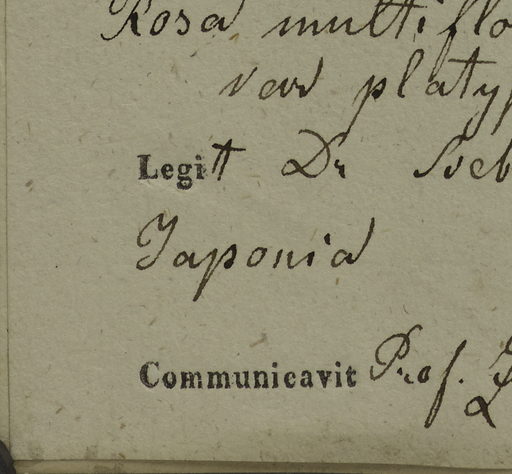 Rosa multiflo
var platyp
Legitt Dr Sieb
Japonia
Communicavit Prof.